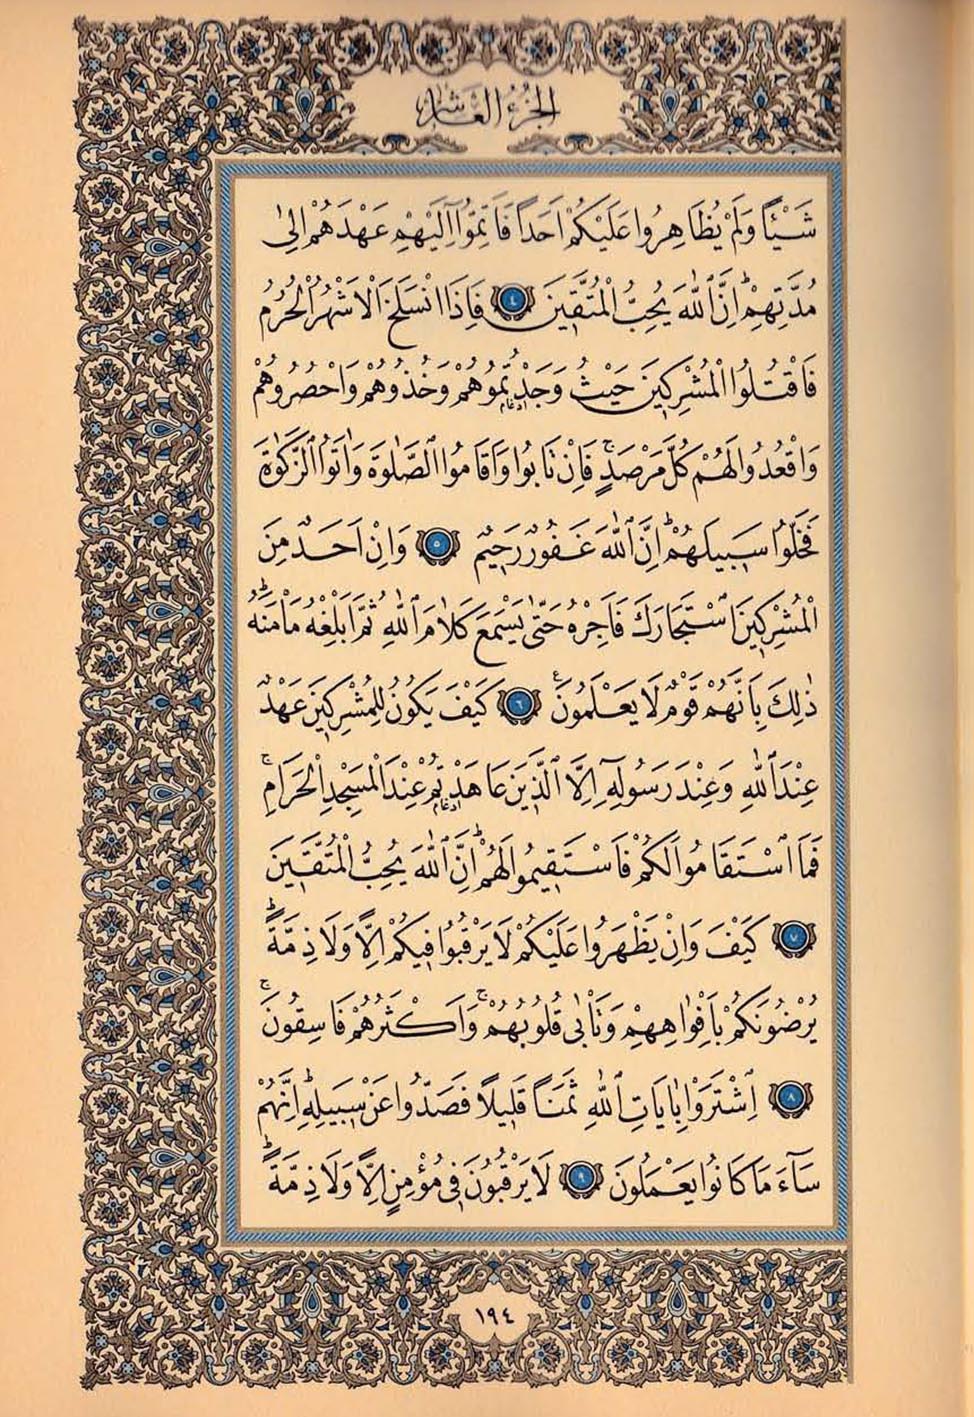 الجزء العاشر
شَيْـًٔا وَلَمْ يُظَاهِرُوا عَلَيْكُمْ اَحَدًا فَاَتِمُّٓوا اِلَيْهِمْ عَهْدَهُمْ اِلٰى
مُدَّتِهِمْۜ اِنَّ اللّٰهَ يُحِبُّ الْمُتَّقٖينَ ﴿٤﴾ فَاِذَا انْسَلَخَ الْاَشْهُرُ الْحُرُمُ
فَاقْتُلُوا الْمُشْرِكٖينَ حَيْثُ وَجَدْتُمُوهُمْ وَخُذُوهُمْ وَاحْصُرُوهُمْ
وَاقْعُدُوا لَهُمْ كُلَّ مَرْصَدٍۚ فَاِنْ تَابُوا وَاَقَامُوا الصَّلٰوةَ وَاٰتَوُا الزَّكٰوةَ
فَخَلُّوا سَبٖيلَهُمْۜ اِنَّ اللّٰهَ غَفُورٌ رَحٖيمٌ ﴿٥﴾ وَاِنْ اَحَدٌ مِنَ
الْمُشْرِكٖينَ اسْتَجَارَكَ فَاَجِرْهُ حَتّٰى يَسْمَعَ كَلَامَ اللّٰهِ ثُمَّ اَبْلِغْهُ مَأْمَنَهُۜ
ذٰلِكَ بِاَنَّهُمْ قَوْمٌ لَا يَعْلَمُونَ۟ ﴿٦﴾ كَيْفَ يَكُونُ لِلْمُشْرِكٖينَ عَهْدٌ
عِنْدَ اللّٰهِ وَعِنْدَ رَسُولِهٖٓ اِلَّا الَّذٖينَ عَاهَدْتُمْ عِنْدَ الْمَسْجِدِ الْحَرَامِۚ
فَمَا اسْتَقَامُوا لَكُمْ فَاسْتَقٖيمُوا لَهُمْۜ اِنَّ اللّٰهَ يُحِبُّ الْمُتَّقٖينَ
﴿٧﴾ كَيْفَ وَاِنْ يَظْهَرُوا عَلَيْكُمْ لَا يَرْقُبُوا فٖيكُمْ اِلًّا وَلَا ذِمَّةًۜ
يُرْضُونَكُمْ بِاَفْوَاهِهِمْ وَتَأْبٰى قُلُوبُهُمْۚ وَاَكْثَرُهُمْ فَاسِقُونَۚ
﴿٨﴾ اِشْتَرَوْا بِاٰيَاتِ اللّٰهِ ثَمَنًا قَلٖيلًا فَصَدُّوا عَنْ سَبٖيلِهٖۜ اِنَّهُمْ
سَٓاءَ مَا كَانُوا يَعْمَلُونَ ﴿٩﴾ لَا يَرْقُبُونَ فٖي مُؤْمِنٍ اِلًّا وَلَا ذِمَّةًۜ
١٩٤